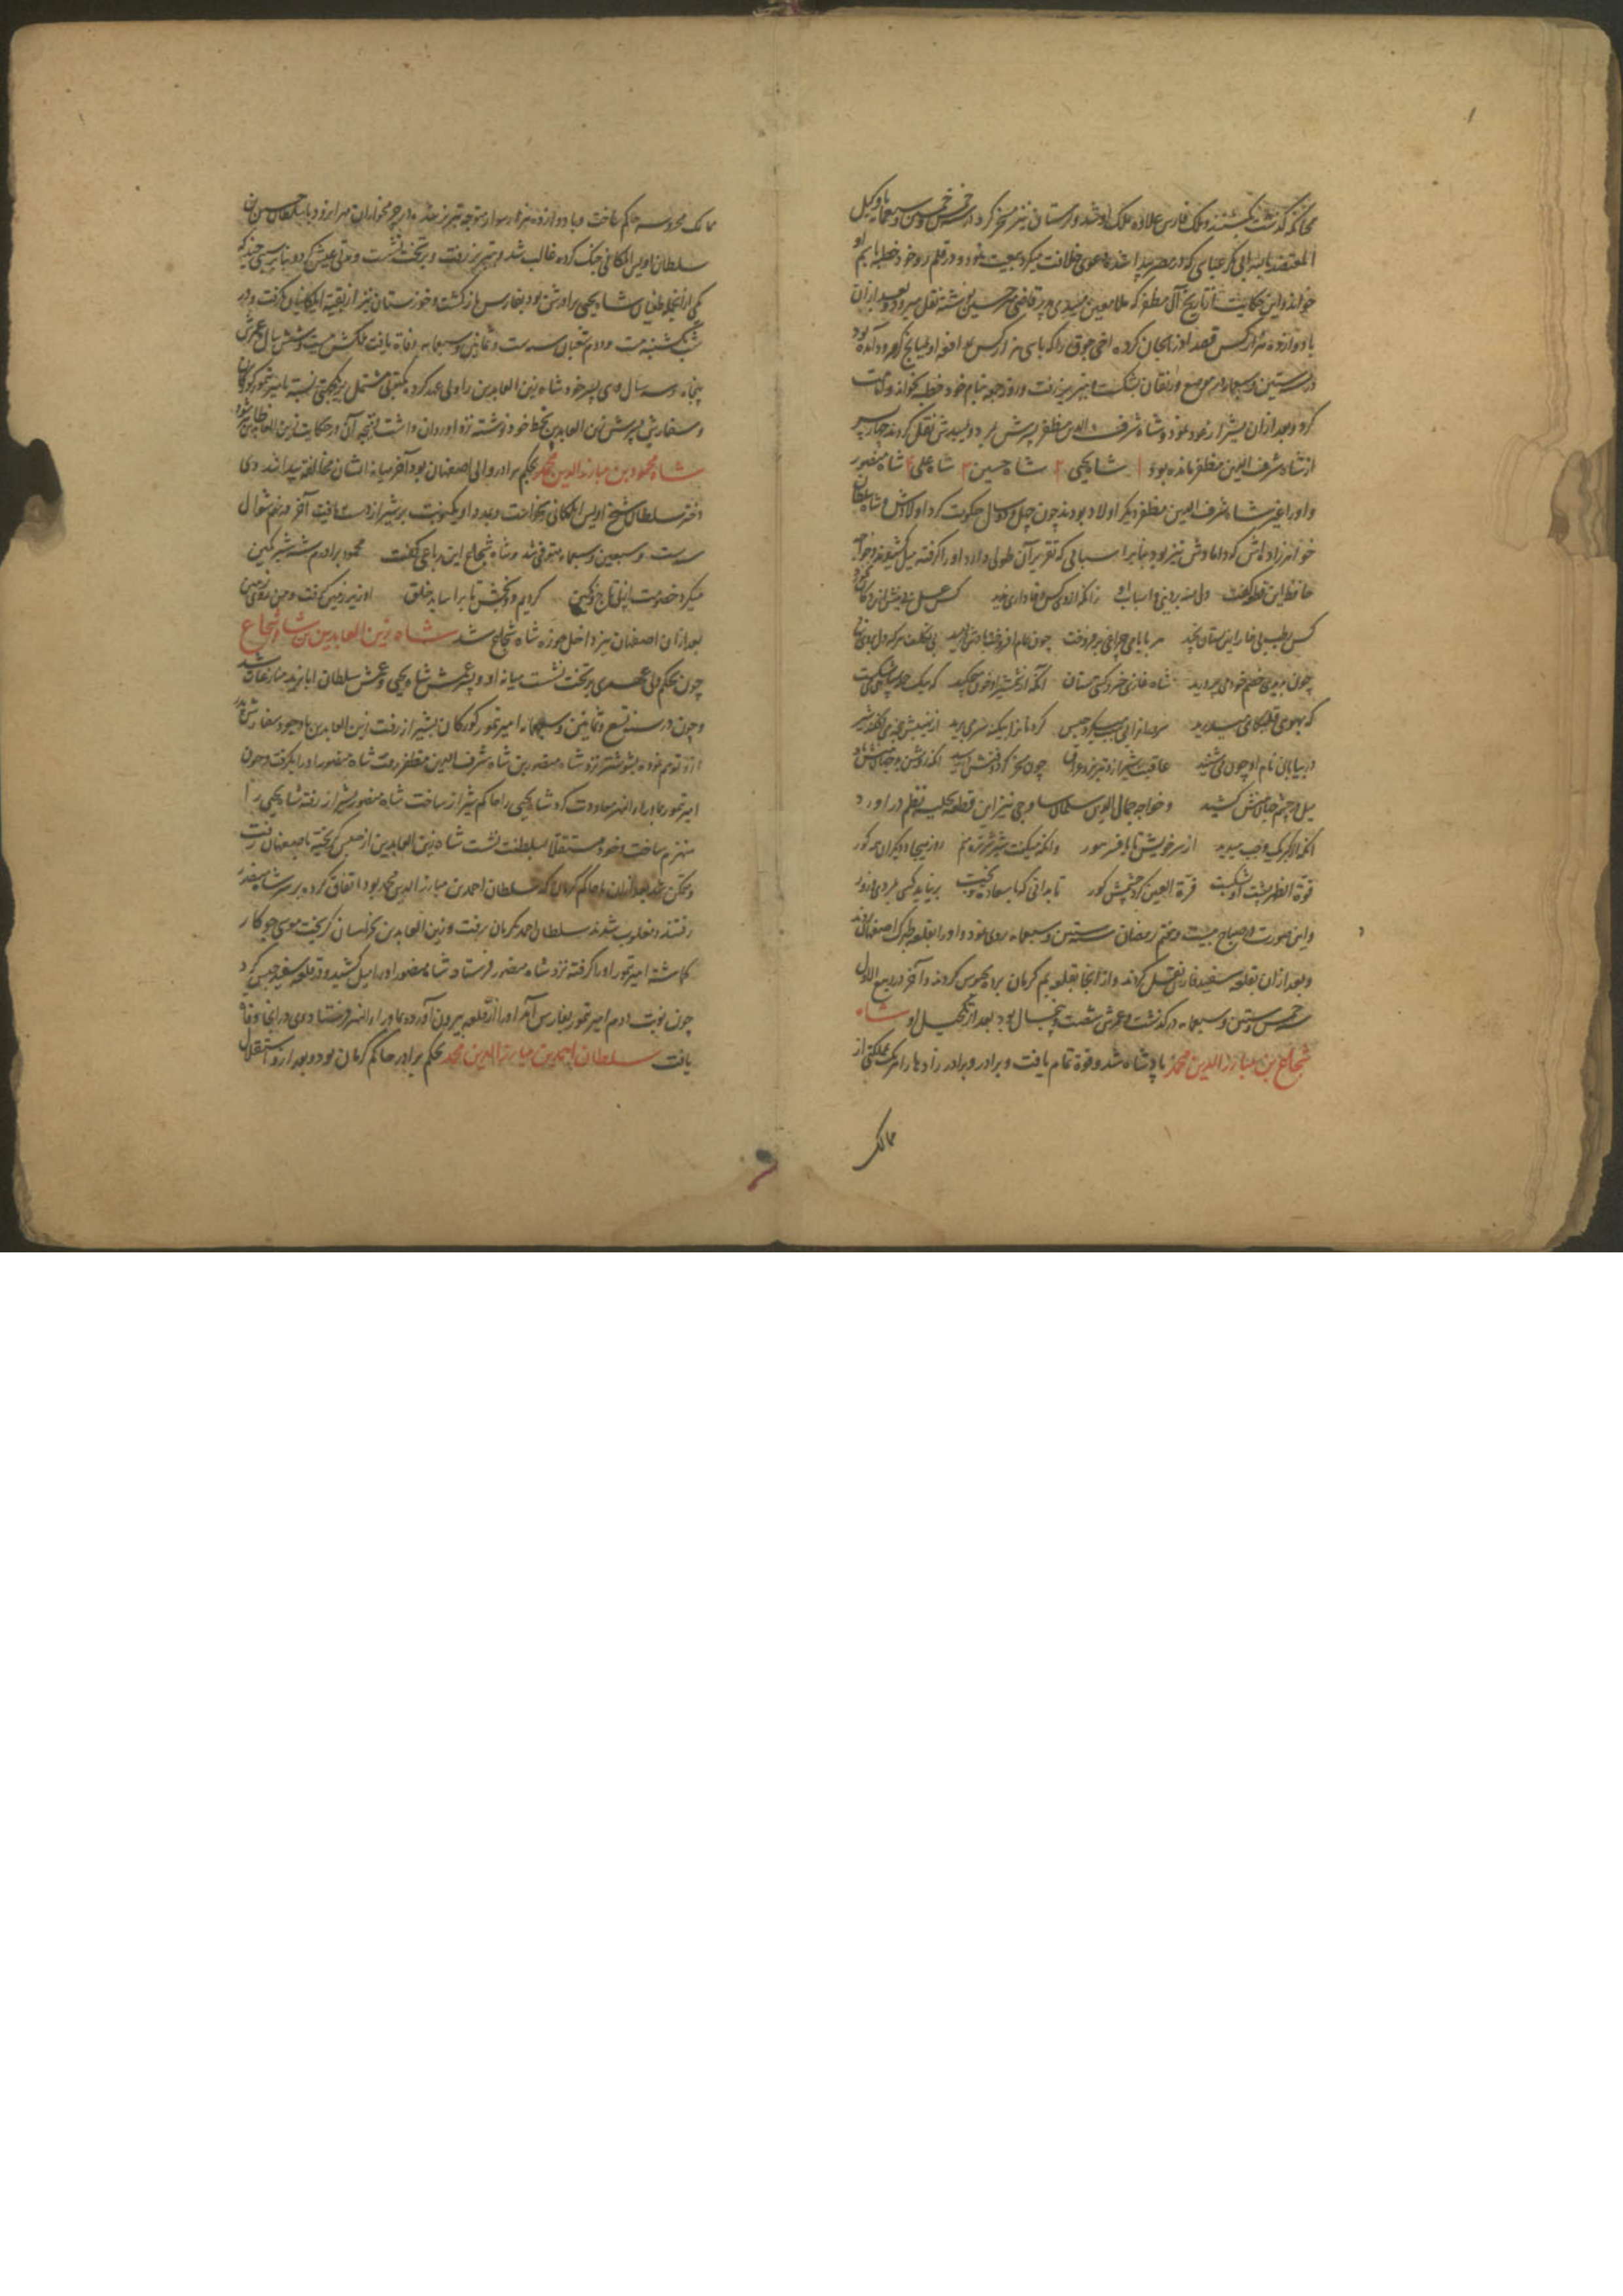 چنانکه گذشت بکشتند و ملک فارس علاوه ملک او شد و لرستان نیز مسخر کرد در سنه خمس و خمسین و سبعمایه با وکیل
المعتضد بالله ابی بکر عباسی که در مصر پیدا شده دعوی خلافت میکرد بیعت نمود و در قلمرو خود خطبه بنام او
خواند و این حکایت از تاریخ آل مظفر که ملا معین یزدی نوشته نقل میرود و بعد از آن
با دوازده هزار کس قصد آذربایجان کرده اخی جوق را که با سی هزار کس
در سنه ستین و سبعمایه بشکست و بتبریز رفت و روز جمعه بنام خود خطبه بخواند
کرد و بعد از آن بشیراز عود نمود و شاه شرف الدین مظفر پسرش نقل کردند چهار پسر
از شاه شرف الدین مظفر مانده بود ۱ شاه یحیی ۲ شاه حسین ۳ شاه علی ۴ شاه منصور
و او را غیر شاه شرف الدین مظفر دیگر اولاد بودند چون چهل و دو سال حکومت کرد اولادش و شاه سلطان
خواهرزاده اش که دامادش نیز بود بنابر اسبابی که تقریر آن طولی دارد او را گرفته میل کشیدند و خواجه
حافظ این قطعه گفت دل منه بر دنیی و اسباب او زانکه از وی کس وفاداری ندید کس عسل بی نیش ازین دکان نخورد
کس رطب بی خار ازین بستان نچید هر بایامی چراغی برفروخت چون تمام افروخت بادش دردمید بی تکلف هر که دل بر وی نهاد
چون بدیدی خصم خود می پرورید شاه غازی خسرو گیتی ستان آنکه از شمشیر او خون میچکید گه بیک حمله سپاهی می شکست
گه بهویی قلبگاهی میدرید سروران را بی سبب میکرد حبس گردنان را بیگنه سر میبرید از نهیبش پنجه می افکند شیر
در بیابان نام او چون می شنید عاقبت شیراز و تبریز و عراق چون مسخر کرد وقتش در رسید آنکه روشن بد جهان بینش بدو
میل در چشم جهان بینش کشید و خواجه جمال الدین سلمان ساوجی نیز این قطعه بنظم درآورد
آنکه از کبر یک وجب میدید از سر خویش تا بافسر هور وآنکه میگفت شیر شرزه منم روز هیجا و دیگران همه گور
قوة الظهر پشت او بشکست قرة العین کرد چشمش کور تا بدانی که با سعادت و بخت بر نیاید کسی بمردی و زور
و این صورت در صباح بیست و هفتم رمضان سنه ستین و سبعمایه روی نمود و او را بقلعه طبرک اصفهان
و بعد از آن بقلعه سفید فارس نقل کردند و از آنجا بقلعه بم کرمان برده محبوس کردند و آخر در ربیع الاول
سنه خمس و ستین و سبعمایه درگذشت و عمرش شصت و پنج سال بود بعد از تکحیل او شاه
شجاع بن مبارز الدین محمد پادشاه شد و قوة تمام یافت و برادر و برادرزادها را هر یک مملکتی از
ممالک
ممالک محروسه حاکم ساخت و با دوازده هزار سوار متوجه تبریز شد و با سلطان حسین بن
سلطان اویس ایلکانی جنگ کرده غالب شد و بتبریز رفت و بر تخت نشست و مدتی عیش کرد و بنا بر سببی چند که
یکی از آنجمله طغیان شاه یحیی برادرش بود بفارس بازگشت و خوزستان نیز از بقیه ایلکانیان گرفت و در
شب یکشنبه بیست و دوم شعبان سنه ست و ثمانین و سبعمایه وفاة یافت ملکش بیست و شش سال عمرش
پنجاه و سه سال وی پسر خود شاه زین العابدین را ولی عهد کرده مکتوبی مشتمل بر یکجهتی نسبت بامیر تیمور کورکان
و سفارش پسرش زین العابدین بخط خود نوشته نزد او روان داشت نتیجه آن در حکایت زین العابدین ظاهر شود
شاه محمود بن مبارز الدین محمد بحکم برادر والی اصفهان بود آخر میانه ایشان مخالفت پیدا شد وی
دختر سلطان شیخ اویس ایلکانی بخواست و بمدد او یکنوبت بر شیراز دست یافت آخر در نهم شوال
سنه ست و سبعین و سبعمایه متوفی شد و شاه شجاع این رباعی گفت محمود برادرم شه شیر کمین
میکرد خصومت از پی تاج و نگین کردیم دو بخش تا بیاساید خلق او زیر زمین گرفت و من روی زمین
بعد از آن اصفهان نیز داخل حوزه شاه شجاع شد شاه زین العابدین بن شاه شجاع
چون بحکم ولی عهدی بر تخت نشست میانه او و پسر عمش شاه یحیی و عمش سلطان ابایزید منازعات شد
و چون در سنه تسع و ثمانین و سبعمایه امیر تیمور کورکان بشیراز رفت زین العابدین با وجود سفارش پدر
ازو توهم نموده بشوشتر نزد شاه منصور بن شاه شرف الدین مظفر رفت شاه منصور او را بگرفت و چون
امیر تیمور بماوراء النهر معاودت کرد شاه یحیی را حاکم شیراز ساخت شاه منصور بشیراز رفته شاه یحیی را
منهزم ساخت و خود مستقلا بسلطنت نشست شاه زین العابدین از حبس گریخته باصفهان رفت
و متمکن شد بعد از آن با حاکم کرمان که سلطان احمد بن مبارز الدین محمد بود اتفاق کرده بر سر شاه منصور
رفتند و مغلوب شدند سلطان احمد بکرمان رفت و زین العابدین بخراسان گریخت موسی جوکار
گماشته امیر تیمور او را گرفته نزد شاه منصور فرستاد شاه منصور او را میل کشید و در قلعه سفید حبس کرد
چون نوبت دوم امیر تیمور بفارس آمد او را از قلعه بیرون آورده بماوراء النهر فرستاد و وی در آنجا وفاة
یافت سلطان احمد بن مبارز الدین محمد بحکم برادر حاکم کرمان بود و بعد ازو استقلال